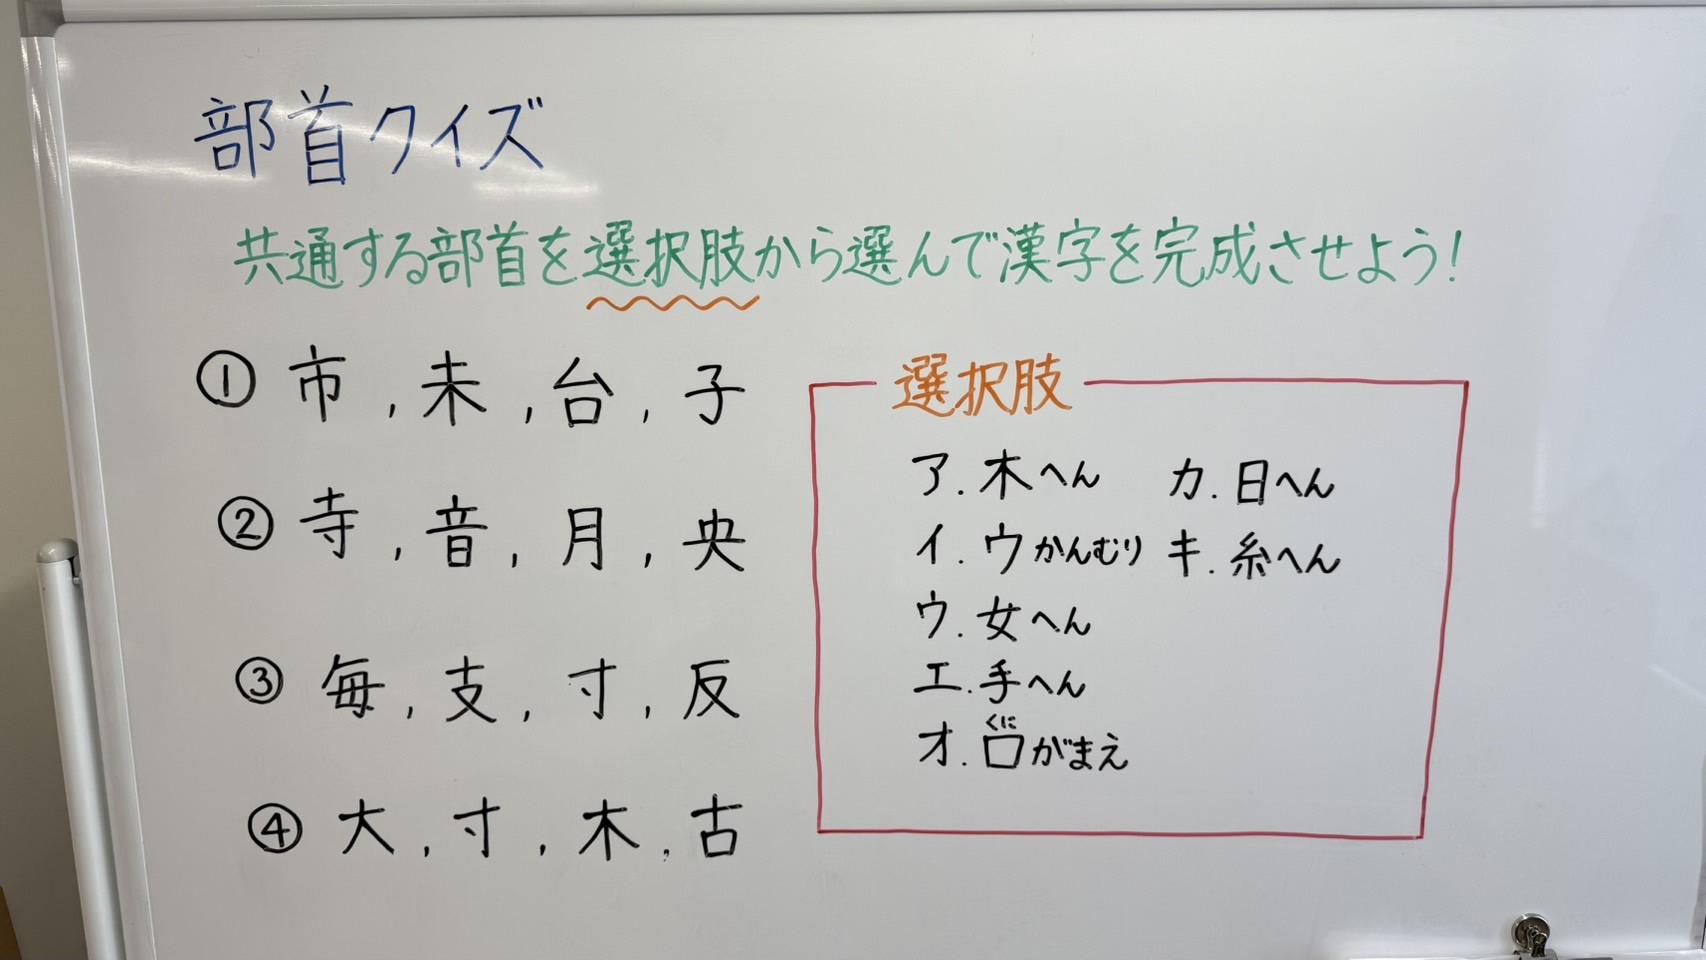 部首クイズ
共通する部首を選択肢から選んで漢字を完成させよう!
① 市, 未, 台, 子
② 寺, 音, 月, 央
③ 毎, 支, 寸, 反
④ 大, 寸, 木, 古
選択肢
ア. 木へん
イ. ウかんむり
ウ. 女へん
エ. 手へん
くに
オ. 囗がまえ
カ. 日へん
キ. 糸へん